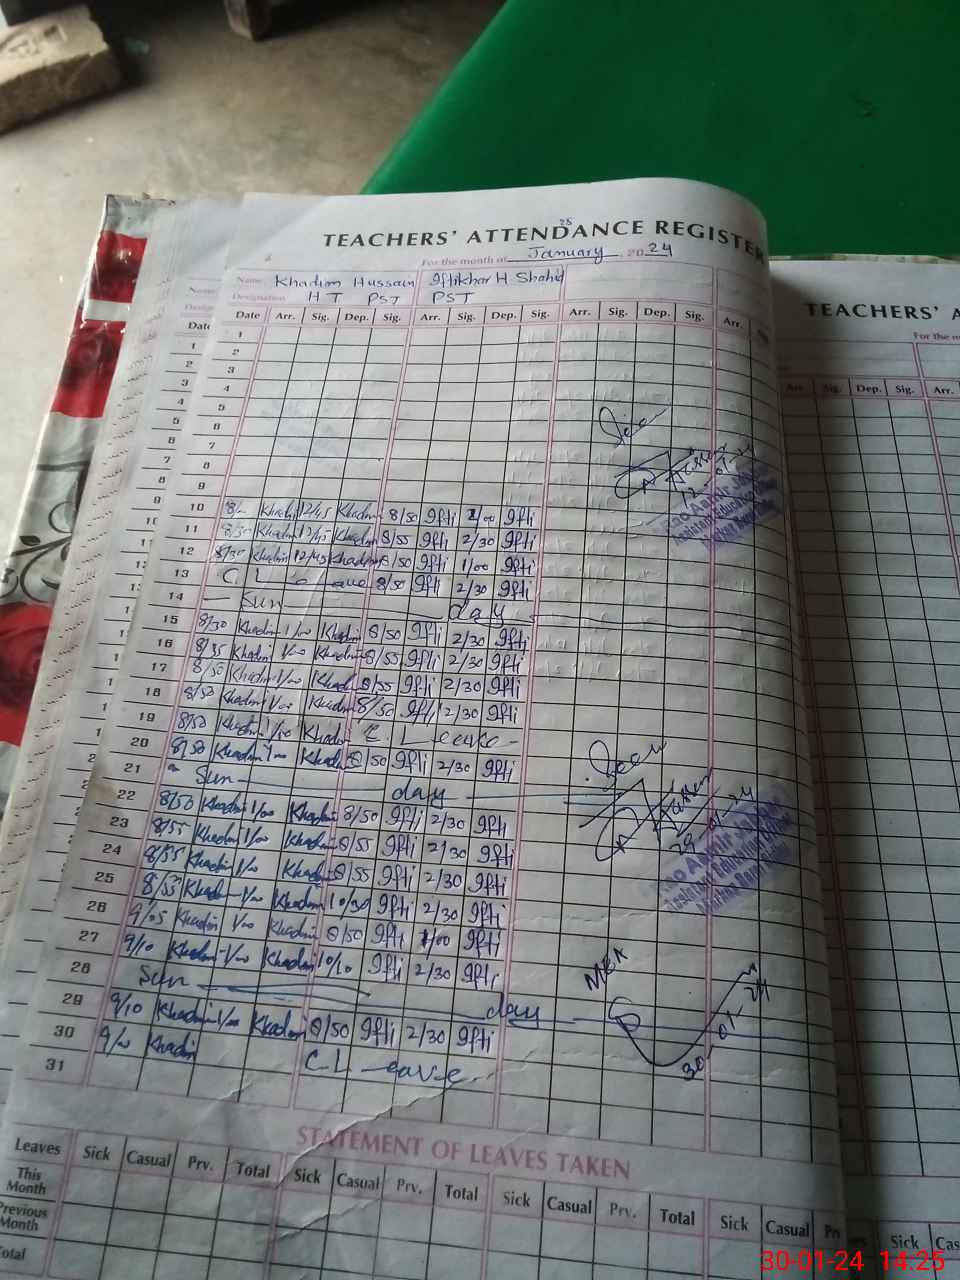 TEACHERS' ATTENDANCE REGISTER
25
For the month of January 2024
Name Khadim Hussain Iftikhar H Shahid
Designation H T PST PST
Date Arr. Sig. Dep. Sig. Arr. Sig. Dep. Sig. Arr. Sig. Dep. Sig. Arr.
1
2
3
4
5
6
7
8
9
10 Khadim 12/45 Khadim 8/50 Ifti Ifti
11 Khadim Khadim 8/55 Ifti 2/30 Ifti
12 8/30 Khadim 12/45 Khadim 8/50 Ifti 1/00 Ifti
13 C L eave 8/50 Ifti 2/30 Ifti
14 Sun day
15 8/30 Khadim 1/00 Khadim 8/50 Ifti 2/30 Ifti
16 8/35 Khadim 1/00 Khadim 8/55 Ifti 2/30 Ifti
17 8/50 Khadim 1/00 Khadim 8/55 Ifti 2/30 Ifti
18 8/50 Khadim 1/00 Khadim 8/50 Ifti 2/30 Ifti
19 8/50 Khadim 1/00 Khadim C. L eave
20 8/50 Khadim 1/00 Khadim 8/50 Ifti 2/30 Ifti
21 Sun day
22 8/50 Khadim 1/00 Khadim 8/50 Ifti 2/30 Ifti
23 8/55 Khadim 1/00 Khadim 8/55 Ifti 2/30 Ifti
24 8/55 Khadim 1/00 Khadim 8/55 Ifti 2/30 Ifti
25 8/55 Khadim 1/00 Khadim 10/30 Ifti 2/30 Ifti
26 9/05 Khadim 1/00 Khadim 8/50 Ifti 1/00 Ifti
27 9/10 Khadim 1/00 Khadim 10/10 Ifti 2/30 Ifti
28 Sun day
29 9/10 Khadim 1/00 Khadim 8/50 Ifti 2/30 Ifti
30 9/00 Khadim C L eave
31
Seen
Seen
29-01-24
MEA
30-01-24
STATEMENT OF LEAVES TAKEN
Leaves Sick Casual Prv. Total Sick Casual Prv. Total Sick Casual Prv. Total Sick Casual
This Month
Previous Month
Total
TEACHERS' A
For the m
Arr. Sig. Dep. Sig. Arr.
Sick Cas
30-01-24 14.25